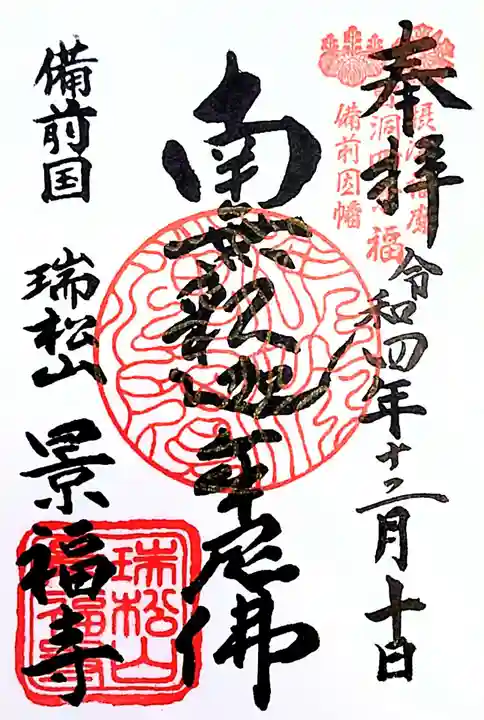 奉拝
令和四年十二月十日
南無釈迦牟尼佛
備前国
瑞松山
景福寺
備前因幡
瑞松山
景福寺